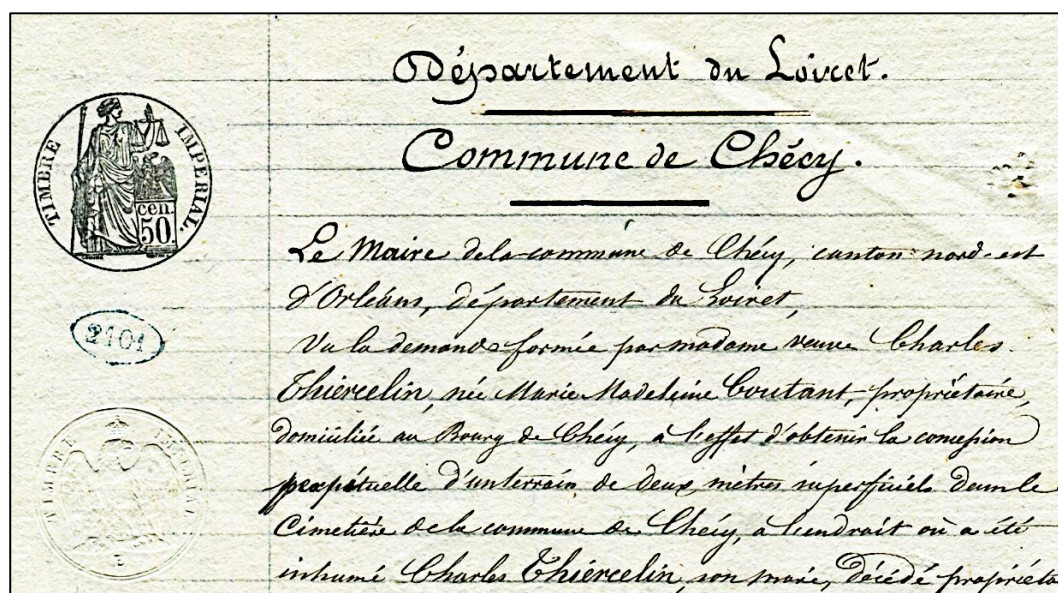 Département du Loiret.
Commune de Chécy.
TIMBRE IMPÉRIAL.
50 cen.
2101
TIMBRE
Le Maire de la commune de Chécy, canton nord-est
d'Orléans, département du Loiret,
Vu la demande formée par madame veuve Charles
Thiercelin, née Marie Madeleine Coutant, propriétaire,
domiciliée au Bourg de Chécy, à l'effet d'obtenir la concession
perpétuelle d'un terrain de deux mètres superficiels dans le
Cimetière de la commune de Chécy, à l'endroit où a été
inhumé Charles Thiercelin, son mari, décédé propriéta